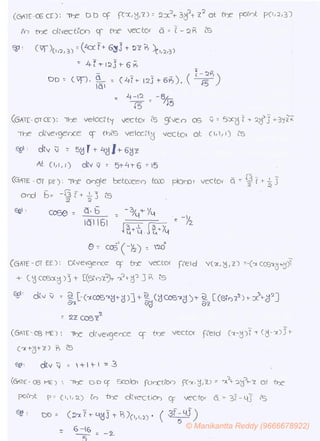 (GATE-06 CE): The D.D of f(x,y,z) = 2x²+3y²+z² at the point P(2,1,3)
in the direction of the vector ā = ī - 2k̄ is
sol: (∇f)(2,1,3) = (4xī + 6yj̄ + 2z k̄)(2,1,3)
= 4ī + 12j̄ + 6k̄
DD = (∇f). ā/|ā| = (4ī + 12j̄ + 6k̄). (ī-2k̄/√5)
= 4-12/√5 = -8/√5
(GATE-07 CE): The velocity vector is given as v̄ = 5xyī + 2y²j̄ + 3yz²k̄
The divergence of this velocity vector at (1,1,1) is
sol: div v̄ = 5y + 4y + 6yz
At (1,1,1) div v̄ = 5+4+6 = 15
(GATE-07 PI): The angle between two planar vector ā = √3/2 ī + 1/2 j̄
and b̄ = -√3/2 ī + 1/2 j̄ is
sol: cosθ = ā.b̄/|ā||b̄| = -3/4+1/4/√3/4+1/4 √3/4+1/4 = -1/2
θ = cos⁻¹(-1/2) = 120°
(GATE-07 EE): Divergence of the vector field v(x,y,z) = -(x cosxy+y)ī
+ (y cosxy)j̄ + [(sinz²)+x²+y²]k̄ is
sol: div v̄ = ∂/∂x[-(xcosxy+y)] + ∂/∂y(ycosxy) + ∂/∂z[(sinz²)+x²+y²]
= 2z cosz²
(GATE-08 ME): The divergence of the vector field (x-y)ī + (y-x)j̄ +
(x+y+z)k̄ is
sol: div v̄ = 1+1+1 = 3
(GATE-08 ME): The D.D of scalar function f(x,y,z) = x²+2y²+z at the
point P = (1,1,2) in the direction of vector ā = 3ī-4j̄ is
sol: DD = (2xī + 4yj̄ + k̄)(1,1,2). (3ī-4j̄/5)
= 6-16/5 = -2
© Manikantta Reddy (9666678922)